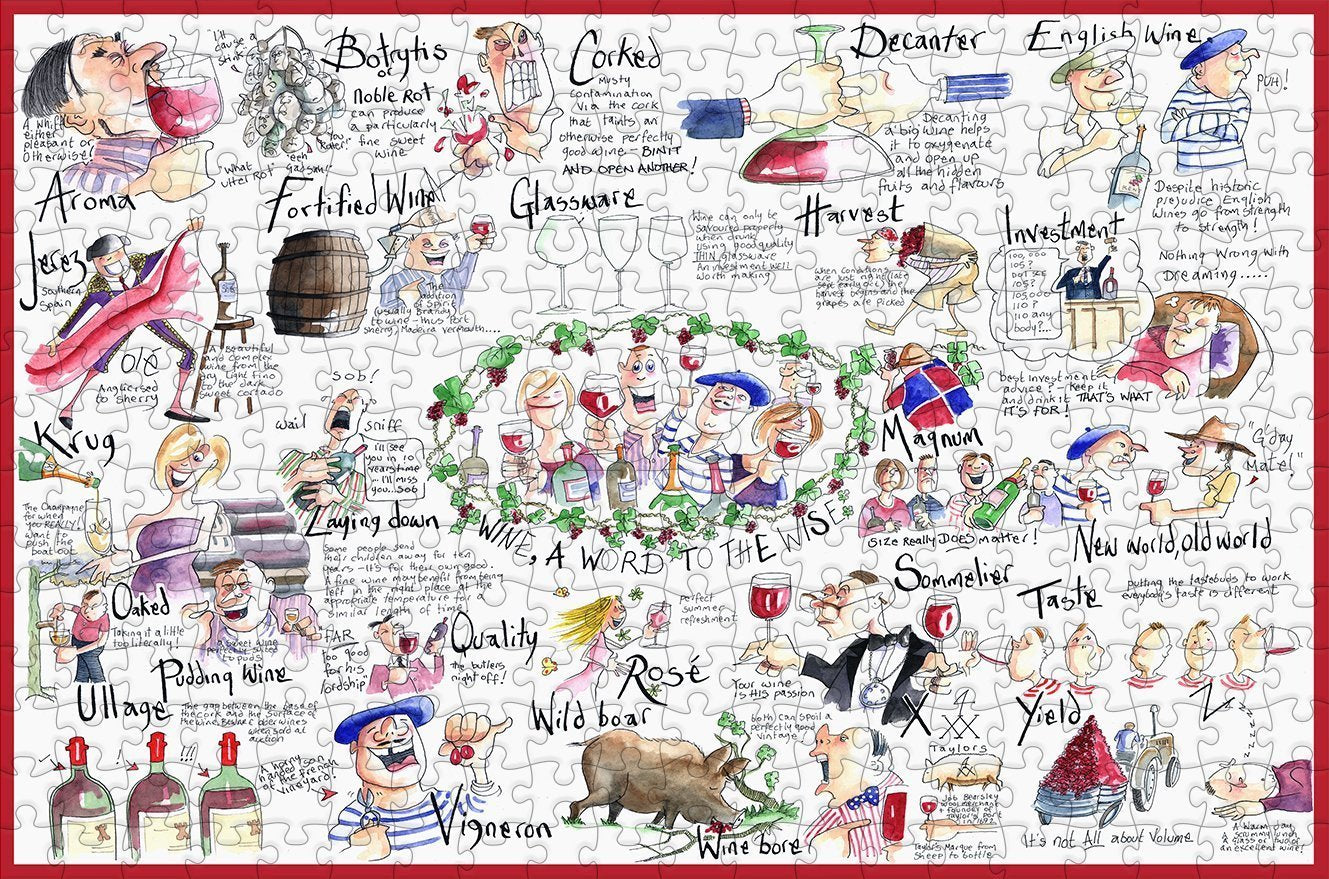 A whiff
either
pleasant or
otherwise!
Aroma
what
utter Rot
Botrytis
or
noble Rot
can produce
a particularly
fine sweet
wine
Corked
Musty
contamination
via the cork
that taints an
otherwise perfectly
good wine - BIN IT
AND OPEN ANOTHER!
Decanter
Decanting
a big wine helps
it to oxygenate
and open up
all the hidden
fruits and flavours
English Wine
PUH!
Despite historic
prejudice English
wines go from strength
to strength!
Fortified Wine
The
addition
of Spirit
(usually Brandy)
to wine - thus Port
Sherry, Madeira Vermouth....
Glassware
Wine can only be
savoured properly
when drunk
using good quality
THIN glassware
An investment well
worth making
Harvest
when conditions
are just right (late
sept/early oct) the
harvest begins and the
grapes are picked
Investment
Nothing Wrong With
Dreaming.....
100,000
105?
105?
105,000
110?
110 any
body?...
best investment
advice? - keep it
and drink it THAT'S WHAT
IT'S FOR!
Jerez
Southern
Spain
Olé
Anglicised
to sherry
A Beautiful
and complex
wine from the
dry light Fino
to the dark
sweet cortado
Krug
The Champagne
for when
you REALLY!
want to
push the
boat out
sob!
wail
sniff
I'll see
you in 10
years time
... I'll miss
you...sob
Laying down
Some people send
their children away for ten
years - it's for their own good.
A fine wine may benefit from being
left in the right place at the
appropriate temperature for a
similar length of time
WINE, A WORD TO THE WISE
Magnum
SIZE Really DOES matter!
"G'day
Mate!"
New world, old world
Oaked
Taking it a little
too literally!
a sweet wine
perfectly suited
to puds
Pudding Wine
FAR
too good
for his
lordship
Quality
the butlers
night off!
perfect
summer
refreshment
Rosé
Sommelier
Your wine
is HIS passion
Taste
putting the tastebuds to work
everybody's taste is different
Ullage
The gap between the base of
the cork and the surface of
the wine. Beware older wines
when sold at
auction
!
!!!
A horny
handed son
of the French
Vineyard!
Vigneron
Wild boar
both can spoil a
perfectly good
vintage!
Wine bore
X
Taylors
Job Bearsley
wool merchant
+ founder of
Taylor's port
in 1692
Taylor's Marque from
sheep to bottle
Yield
It's not All about Volume
Z
zzzzz
A Warm day,
a scrummy lunch
a glass or two of
an excellent wine!